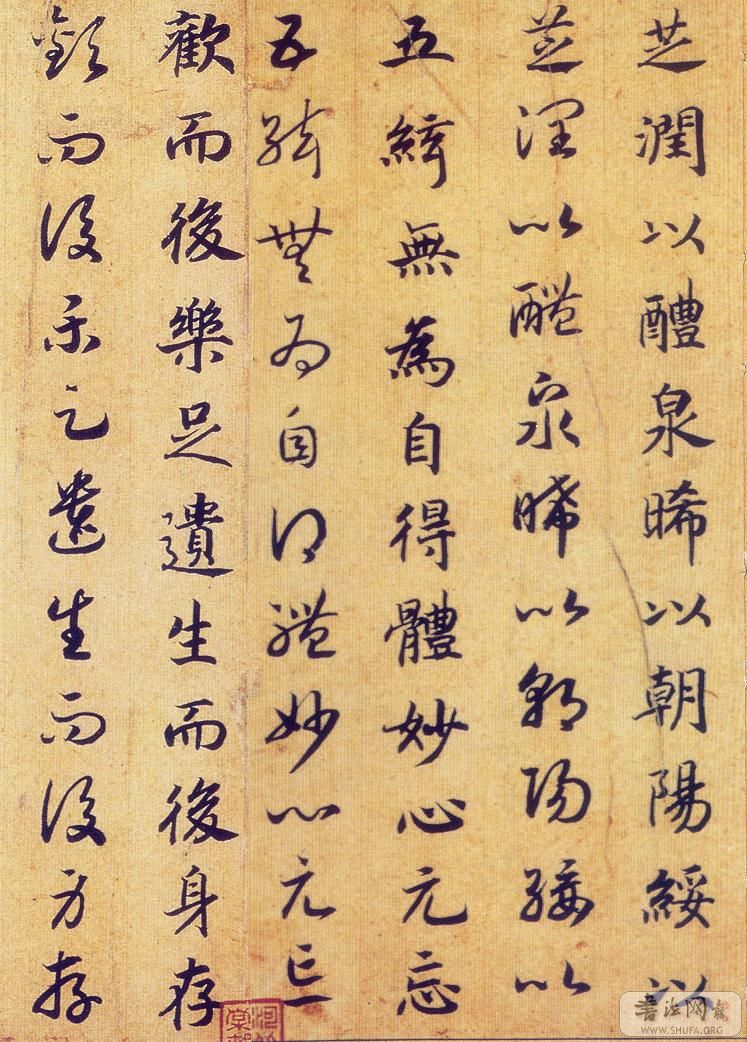 芝潤以醴泉晞以朝陽綏以
芝潤以醴泉晞以朝陽綏以
五絃無為自得體妙心元忘
五絃無為自得體妙心元忘
歡而後樂足遺生而後身存
歡而後樂足遺生而後身存
書法网
WWW.SHUFA.ORG